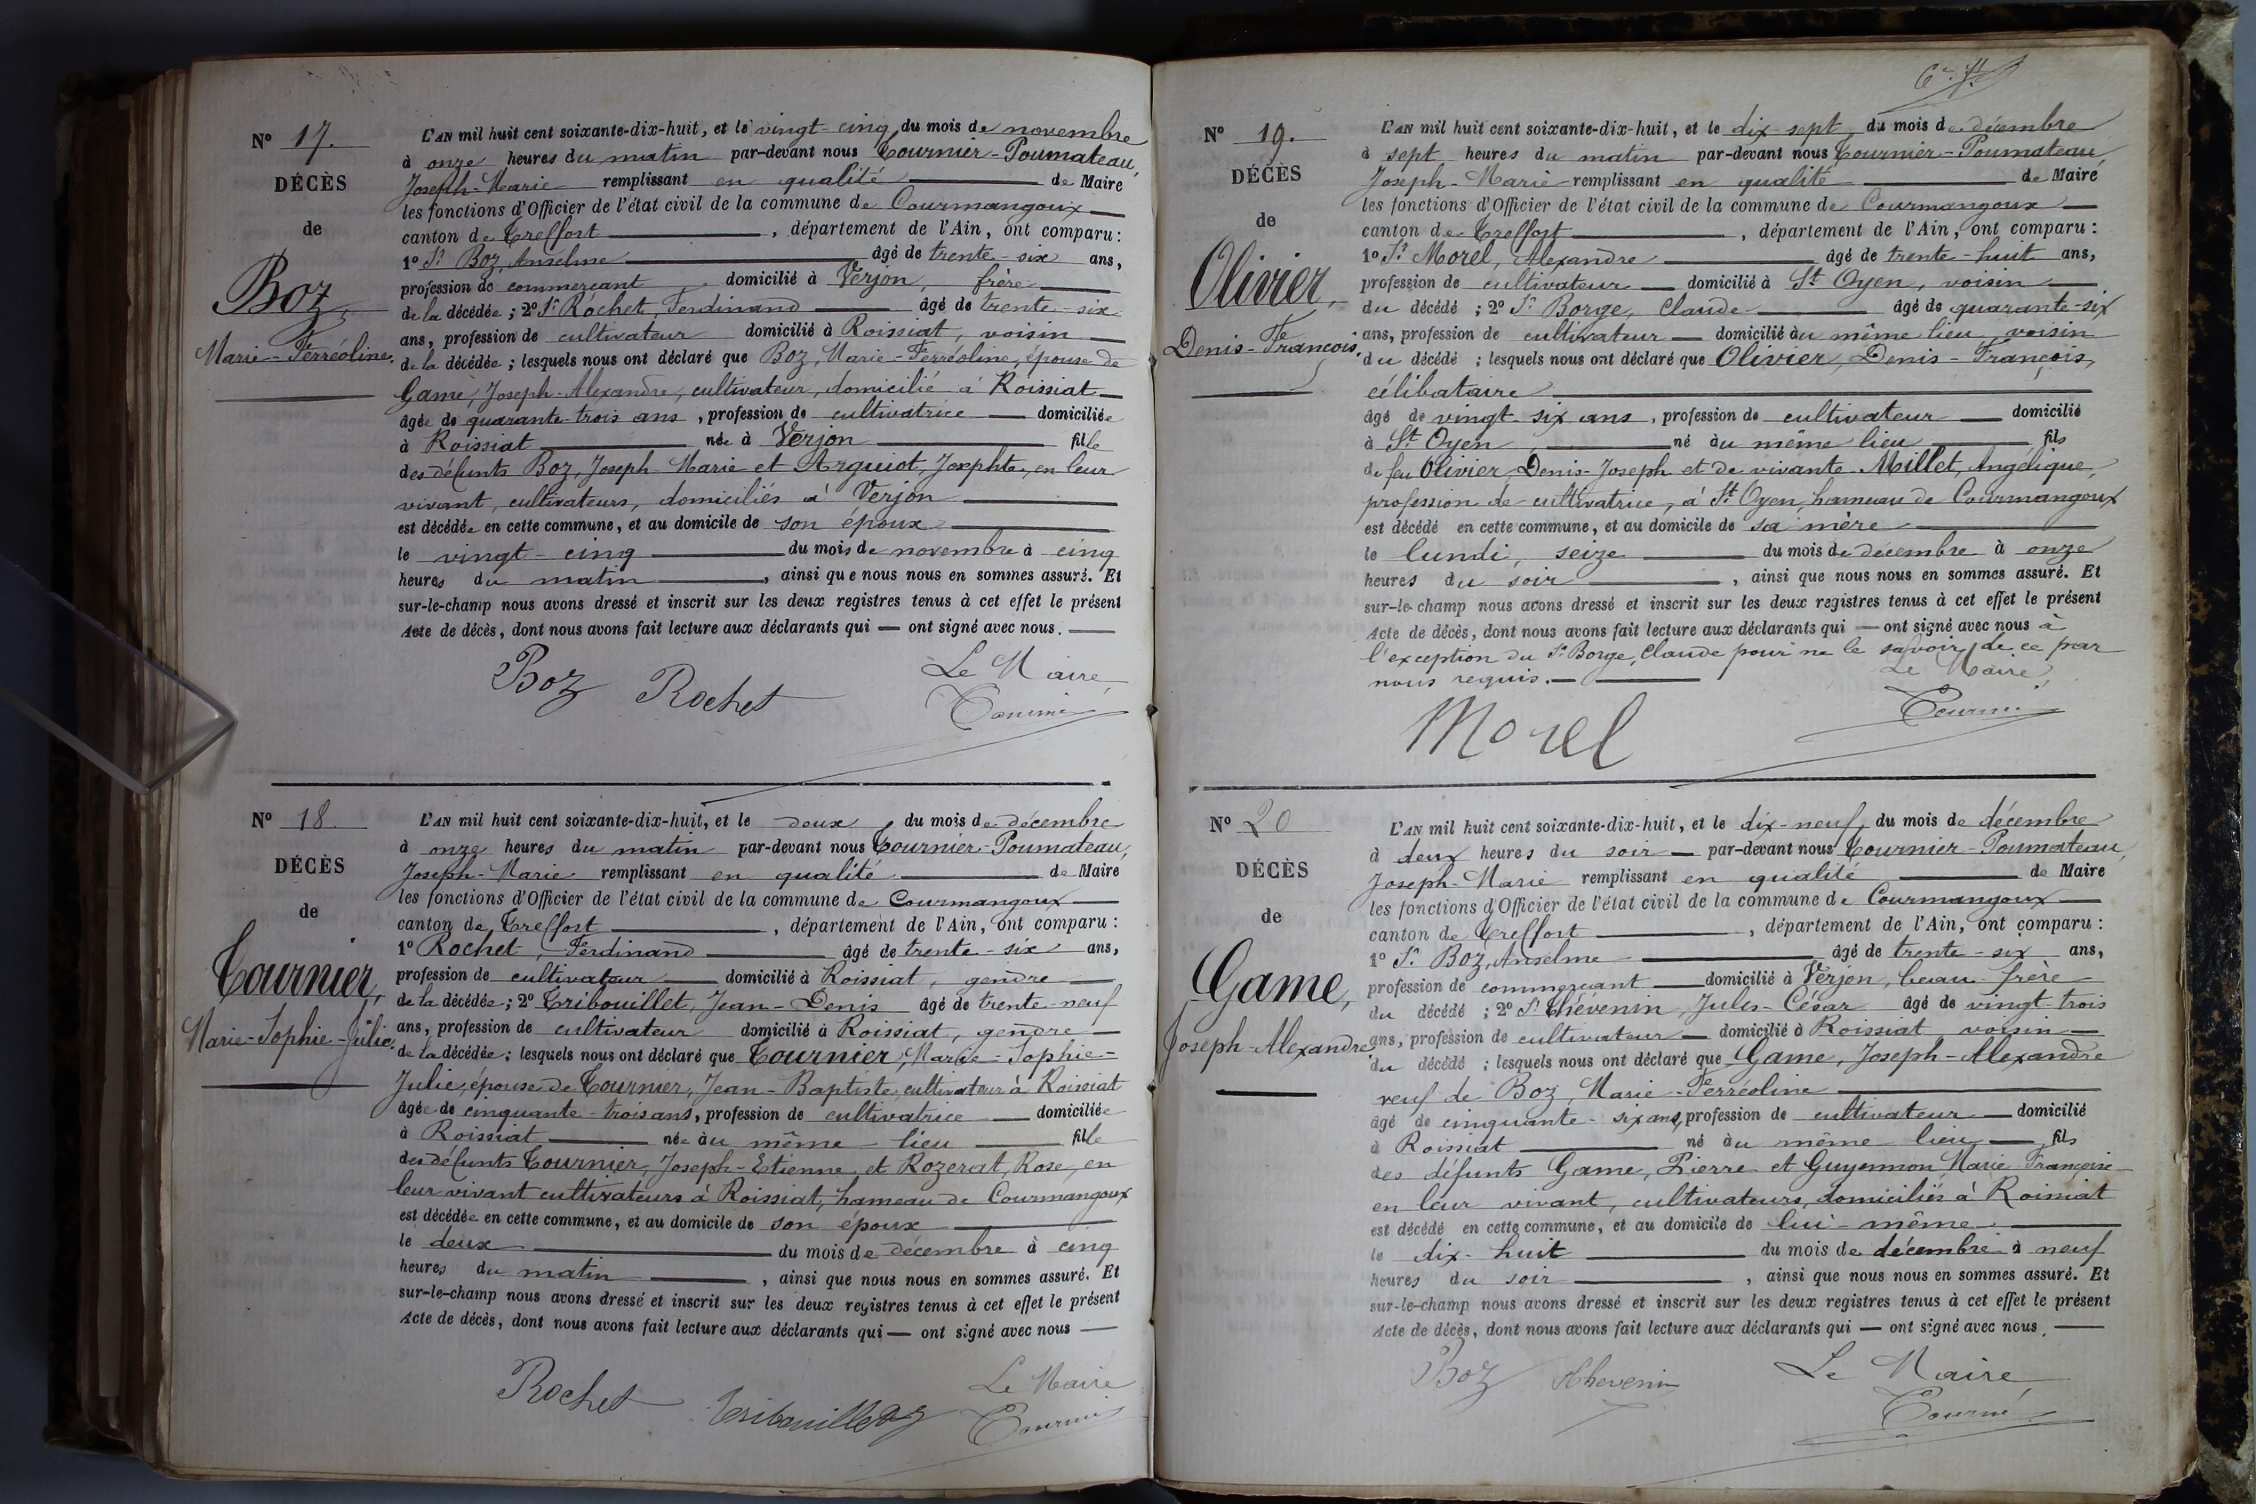 Nº 17.
DÉCÈS
de
Boz,
Marie-Ferréoline.
L'AN mil huit cent soixante-dix-huit, et le vingt-cinq du mois de novembre
à onze heures du matin par-devant nous Tournier-Poumateau,
Joseph-Marie remplissant en qualité de Maire
les fonctions d'Officier de l'état civil de la commune de Courmangoux
canton de Treffort, département de l'Ain, ont comparu:
1º Sr Boz, Anselme âgé de trente-six ans,
profession de commerçant domicilié à Verjon, frère
de la décédée; 2º Sr Rochet, Ferdinand âgé de trente-six
ans, profession de cultivateur domicilié à Roissiat, voisin
de la décédée; lesquels nous ont déclaré que Boz, Marie-Ferréoline, épouse de
Game, Joseph-Alexandre, cultivateur, domicilié à Roissiat
âgée de quarante-trois ans, profession de cultivatrice domiciliée
à Roissiat née à Verjon fille
des défunts Boz, Joseph-Marie et Arguiot, Josephte, en leur
vivant, cultivateurs, domiciliés à Verjon
est décédée en cette commune, et au domicile de son époux
le vingt-cinq du mois de novembre à cinq
heures du matin, ainsi que nous nous en sommes assuré. Et
sur-le-champ nous avons dressé et inscrit sur les deux registres tenus à cet effet le présent
Acte de décès, dont nous avons fait lecture aux déclarants qui — ont signé avec nous.
Boz Rochet Le Maire,
Tournier
Nº 18.
DÉCÈS
de
Tournier,
Marie-Sophie-Julie.
L'AN mil huit cent soixante-dix-huit, et le deux du mois de décembre
à onze heures du matin par-devant nous Tournier-Poumateau,
Joseph-Marie remplissant en qualité de Maire
les fonctions d'Officier de l'état civil de la commune de Courmangoux
canton de Treffort, département de l'Ain, ont comparu:
1º Rochet, Ferdinand âgé de trente-six ans,
profession de cultivateur domicilié à Roissiat, gendre
de la décédée; 2º Tribouillet, Jean-Denis âgé de trente-neuf
ans, profession de cultivateur domicilié à Roissiat, gendre
de la décédée; lesquels nous ont déclaré que Tournier, Marie-Sophie-
Julie, épouse de Tournier, Jean-Baptiste, cultivateur à Roissiat
âgée de cinquante-trois ans, profession de cultivatrice domiciliée
à Roissiat née au même lieu fille
des défunts Tournier, Joseph-Etienne, et Rozerat, Rose, en
leur vivant cultivateurs à Roissiat, hameau de Courmangoux
est décédée en cette commune, et au domicile de son époux
le deux du mois de décembre à cinq
heures du matin, ainsi que nous nous en sommes assuré. Et
sur-le-champ nous avons dressé et inscrit sur les deux registres tenus à cet effet le présent
Acte de décès, dont nous avons fait lecture aux déclarants qui — ont signé avec nous
Rochet Tribouillet Le Maire
Tournier
Nº 19.
DÉCÈS
de
Olivier,
Denis-François.
L'AN mil huit cent soixante-dix-huit, et le dix-sept du mois de décembre
à sept heures du matin par-devant nous Tournier-Poumateau,
Joseph-Marie remplissant en qualité de Maire
les fonctions d'Officier de l'état civil de la commune de Courmangoux
canton de Treffort, département de l'Ain, ont comparu:
1º Sr Morel, Alexandre âgé de trente-huit ans,
profession de cultivateur domicilié à St Oyen, voisin
du décédé; 2º Sr Borge, Claude âgé de quarante-six
ans, profession de cultivateur domicilié au même lieu voisin
du décédé; lesquels nous ont déclaré que Olivier, Denis-François,
célibataire
âgé de vingt-six ans, profession de cultivateur domicilié
à St Oyen né au même lieu fils
de feu Olivier, Denis-Joseph et de vivante Millet, Angélique,
profession de cultivatrice, à St Oyen, hameau de Courmangoux
est décédé en cette commune, et au domicile de sa mère
le lundi, seize du mois de décembre à onze
heures du soir, ainsi que nous nous en sommes assuré. Et
sur-le-champ nous avons dressé et inscrit sur les deux registres tenus à cet effet le présent
Acte de décès, dont nous avons fait lecture aux déclarants qui — ont signé avec nous à
l'exception du Sr Borge, Claude pour ne le savoir, de ce par
nous requis. Le Maire,
Morel Tournier
Nº 20
DÉCÈS
de
Game,
Joseph-Alexandre.
L'AN mil huit cent soixante-dix-huit, et le dix-neuf du mois de décembre
à deux heures du soir par-devant nous Tournier-Poumateau,
Joseph-Marie remplissant en qualité de Maire
les fonctions d'Officier de l'état civil de la commune de Courmangoux
canton de Treffort, département de l'Ain, ont comparu:
1º Sr Boz, Anselme âgé de trente-six ans,
profession de commerçant domicilié à Verjon, beau-frère
du décédé; 2º Sr Thévenin, Jules-César âgé de vingt-trois
ans, profession de cultivateur domicilié à Roissiat, voisin
du décédé; lesquels nous ont déclaré que Game, Joseph-Alexandre
veuf de Boz, Marie-Ferréoline
âgé de cinquante-six ans, profession de cultivateur domicilié
à Roissiat né au même lieu fils
des défunts Game, Pierre et Guyennon, Marie Françoise
en leur vivant, cultivateurs, domiciliés à Roissiat
est décédé en cette commune, et au domicile de lui-même
le dix-huit du mois de décembre à neuf
heures du soir, ainsi que nous nous en sommes assuré. Et
sur-le-champ nous avons dressé et inscrit sur les deux registres tenus à cet effet le présent
Acte de décès, dont nous avons fait lecture aux déclarants qui — ont signé avec nous.
Boz Thevenin Le Maire,
Tournier